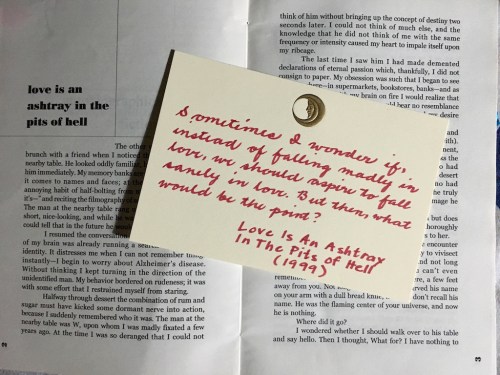 love is an
ashtray in the
pits of hell
The other
brunch with a friend when I noticed the
nearby table. He looked oddly familiar,
him immediately. My memory banks
it comes to names and faces; at the
annoying habit of half-bolting from
it's—" and reciting the filmography of a
The man at the nearby table rang
short, nice-looking, and while he w
could tell that in the future be
I resumed the conversation
of my brain was already running a se
identity. It distresses me when I can not remember
instantly—I begin to worry about Alzheimer's disease.
Without thinking I kept turning in the direction of the
unidentified man. My behavior bordered on rudeness; it was
with some effort that I restrained myself from staring.
Halfway through dessert the combination of rum and
sugar must have kicked some dormant nerve into action,
because I suddenly remembered who it was. The man at the
nearby table was W, upon whom I was madly fixated a few
years ago. At the time I was so deranged that I could not
Sometimes I wonder if,
instead of falling madly in
love, we should aspire to fall
sanely in love. But then, what
would be the point?
Love Is An Ashtray
In The Pits of Hell
(1999)
think of him without bringing up the concept of destiny two
seconds later. I could not think of much else, and the
knowledge that he did not think of me with the same
frequency or intensity caused my heart to impale itself upon
my ribcage.
The last time I saw him I had made demented
declarations of eternal passion which, thankfully, I did not
consign to paper. My obsession was such that I began to see
here—in supermarkets, bookstores, banks—and as
my brain on fire I would realize that
bear no resemblance
desire
and
no
had
desert
to
image
but does
thorough
to hers
encounter
vivisect
and not long
can't even
a few feet
away from you. Not long saved his name
on your arm with a dull bread knife, don't recall his
name. He was the flaming center of your universe, and now
he is nothing.
Where did it go?
I wondered whether I should walk over to his table
and say hello. Then I thought, What for? I have nothing to